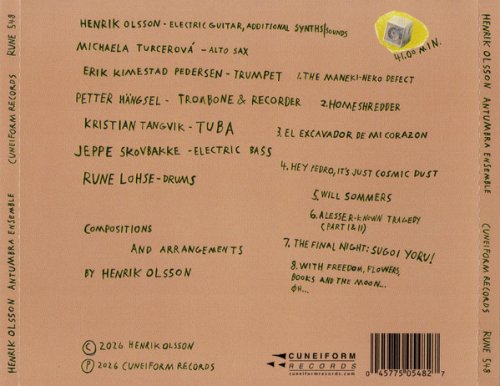 HENRIK OLSSON - ELECTRIC GUITAR, ADDITIONAL SYNTHS/SOUNDS
MICHAELA TURCEROVÁ - ALTO SAX
ERIK KIMESTAD PEDERSEN - TRUMPET
PETTER HÄNGSEL - TROMBONE & RECORDER
KRISTIAN TANGVIK - TUBA
JEPPE SKOVBAKKE - ELECTRIC BASS
RUNE LOHSE - DRUMS
COMPOSITIONS
AND ARRANGEMENTS
BY HENRIK OLSSON
© 2026 HENRIK OLSSON
℗ 2026 CUNEIFORM RECORDS
41:00 MIN.
1. THE MANEKI-NEKO DEFECT
2. HOMESHREDDER
3. EL EXCAVADOR DE MI CORAZON
4. HEY PEDRO, IT'S JUST COSMIC DUST
5. WILL SOMMERS
6. A LESSER-KNOWN TRAGEDY
(PART I & II)
7. THE FINAL NIGHT: SUGOI YORU!
8. WITH FREEDOM, FLOWERS,
BOOKS AND THE MOON...
ØH...
CUNEIFORM
RECORDS
cuneiformrecords.com
0 45775 05482 7
HENRIK OLSSON ANTUMBRA ENSEMBLE CUNEIFORM RECORDS RUNE 548
HENRIK OLSSON ANTUMBRA ENSEMBLE CUNEIFORM RECORDS RUNE 548